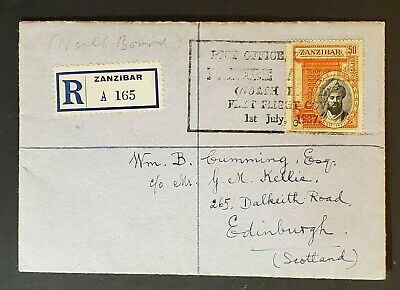 (North Bound)
R
ZANZIBAR
A 165
POST OFFICE,
(NORTH
FIRST FLIGHT
1st July, 1937.
ZANZIBAR
50
Wm. B. Cumming, Esq.
c/o Mr. G. M. Kellie
265, Dalkeith Road,
Edinburgh.
(Scotland)